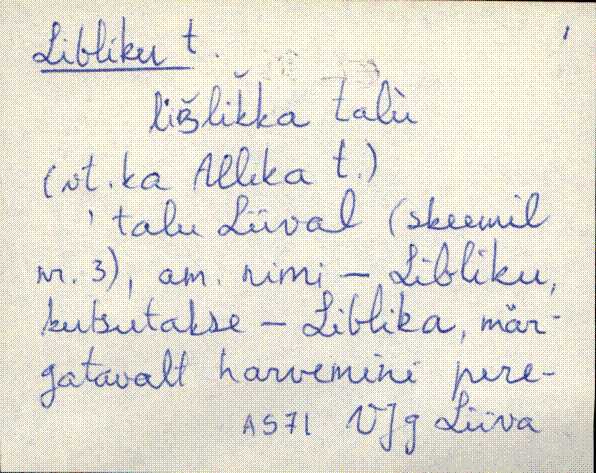 Libliku t.
liʙ̆likka talù
(vt. ka Allika t.)
' talu Liival (skeemil
nr. 3), am. nimi – Libliku,
kutsutakse – Liblika, mär-
gatavalt harvemini pere-
AS71 VJg Liiva